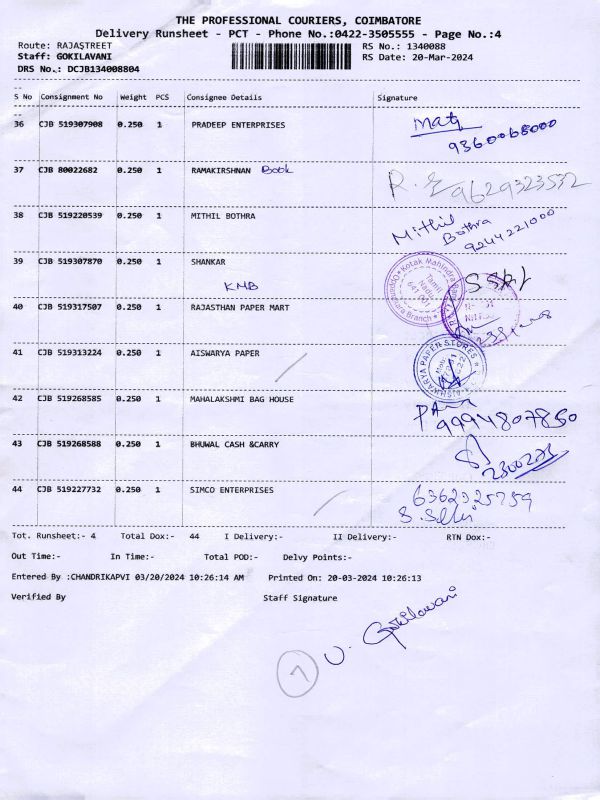 THE PROFESSIONAL COURIERS, COIMBATORE
Delivery Runsheet - PCT - Phone No.:0422-3505555 - Page No.:4
Route: RAJASTREET RS No.: 1340088
Staff: GOKILAVANI RS Date: 20-Mar-2024
DRS No.: DCJB134008804
S No Consignment No Weight PCS Consignee Details Signature
36 CJB 519307908 0.250 1 PRADEEP ENTERPRISES
9360068000
37 CJB 80022682 0.250 1 RAMAKIRSHNAN Book
9629323532
38 CJB 519220539 0.250 1 MITHIL BOTHRA Mithil
Bothra
9244221000
39 CJB 519307870 0.250 1 SHANKAR
KMB
Kotak Mahindra
Tamil
Branch
40 CJB 519317507 0.250 1 RAJASTHAN PAPER MART
41 CJB 519313224 0.250 1 AISWARYA PAPER
AISHWARYA PAPER STORES
42 CJB 519268585 0.250 1 MAHALAKSHMI BAG HOUSE
9994807850
43 CJB 519268588 0.250 1 BHUWAL CASH &CARRY
44 CJB 519227732 0.250 1 SIMCO ENTERPRISES
Tot. Runsheet:- 4 Total Dox:- 44 I Delivery:- II Delivery:- RTN Dox:-
Out Time:- In Time:- Total POD:- Delvy Points:-
Entered By :CHANDRIKAPVI 03/20/2024 10:26:14 AM Printed On: 20-03-2024 10:26:13
Verified By Staff Signature
V. Gokilavani
7